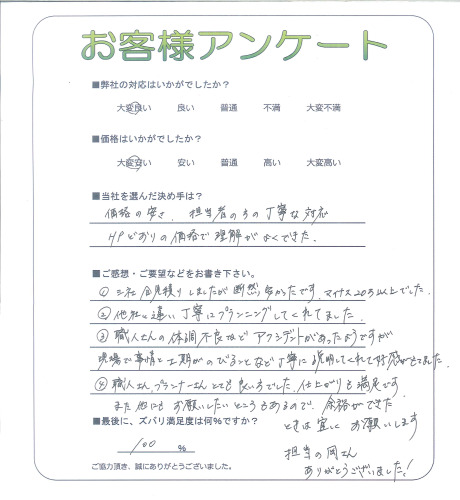 お客様アンケート
■弊社の対応はいかがでしたか?
大変良い 良い 普通 不満 大変不満
■価格はいかがでしたか?
大変安い 安い 普通 高い 大変高い
■当社を選んだ決め手は?
価格の安さ、担当者の方の丁寧な対応
HPどおりの価格で理解がよくできた。
■ご感想・ご要望などをお書き下さい。
① 三社見積りしましたが断然安かったです。マイナス20万以上でした。
② 他社と違い丁寧にプランニングしてくれてました。
③ 職人さんの体調不良など アクシデントがあったようですが
現場で事情と工期がのびることなど丁寧に説明してくれて好感がもてました。
④ 職人さん、プランナーさんとても良い方でした。仕上がりも満足です。
また他にもお願いしたいところもあるので、余裕ができた
ときは宜しくお願いします
■最後に、ズバリ満足度は何%ですか?
100 %
担当の岡さん
ありがとうございました!
ご協力頂き、誠にありがとうございました。